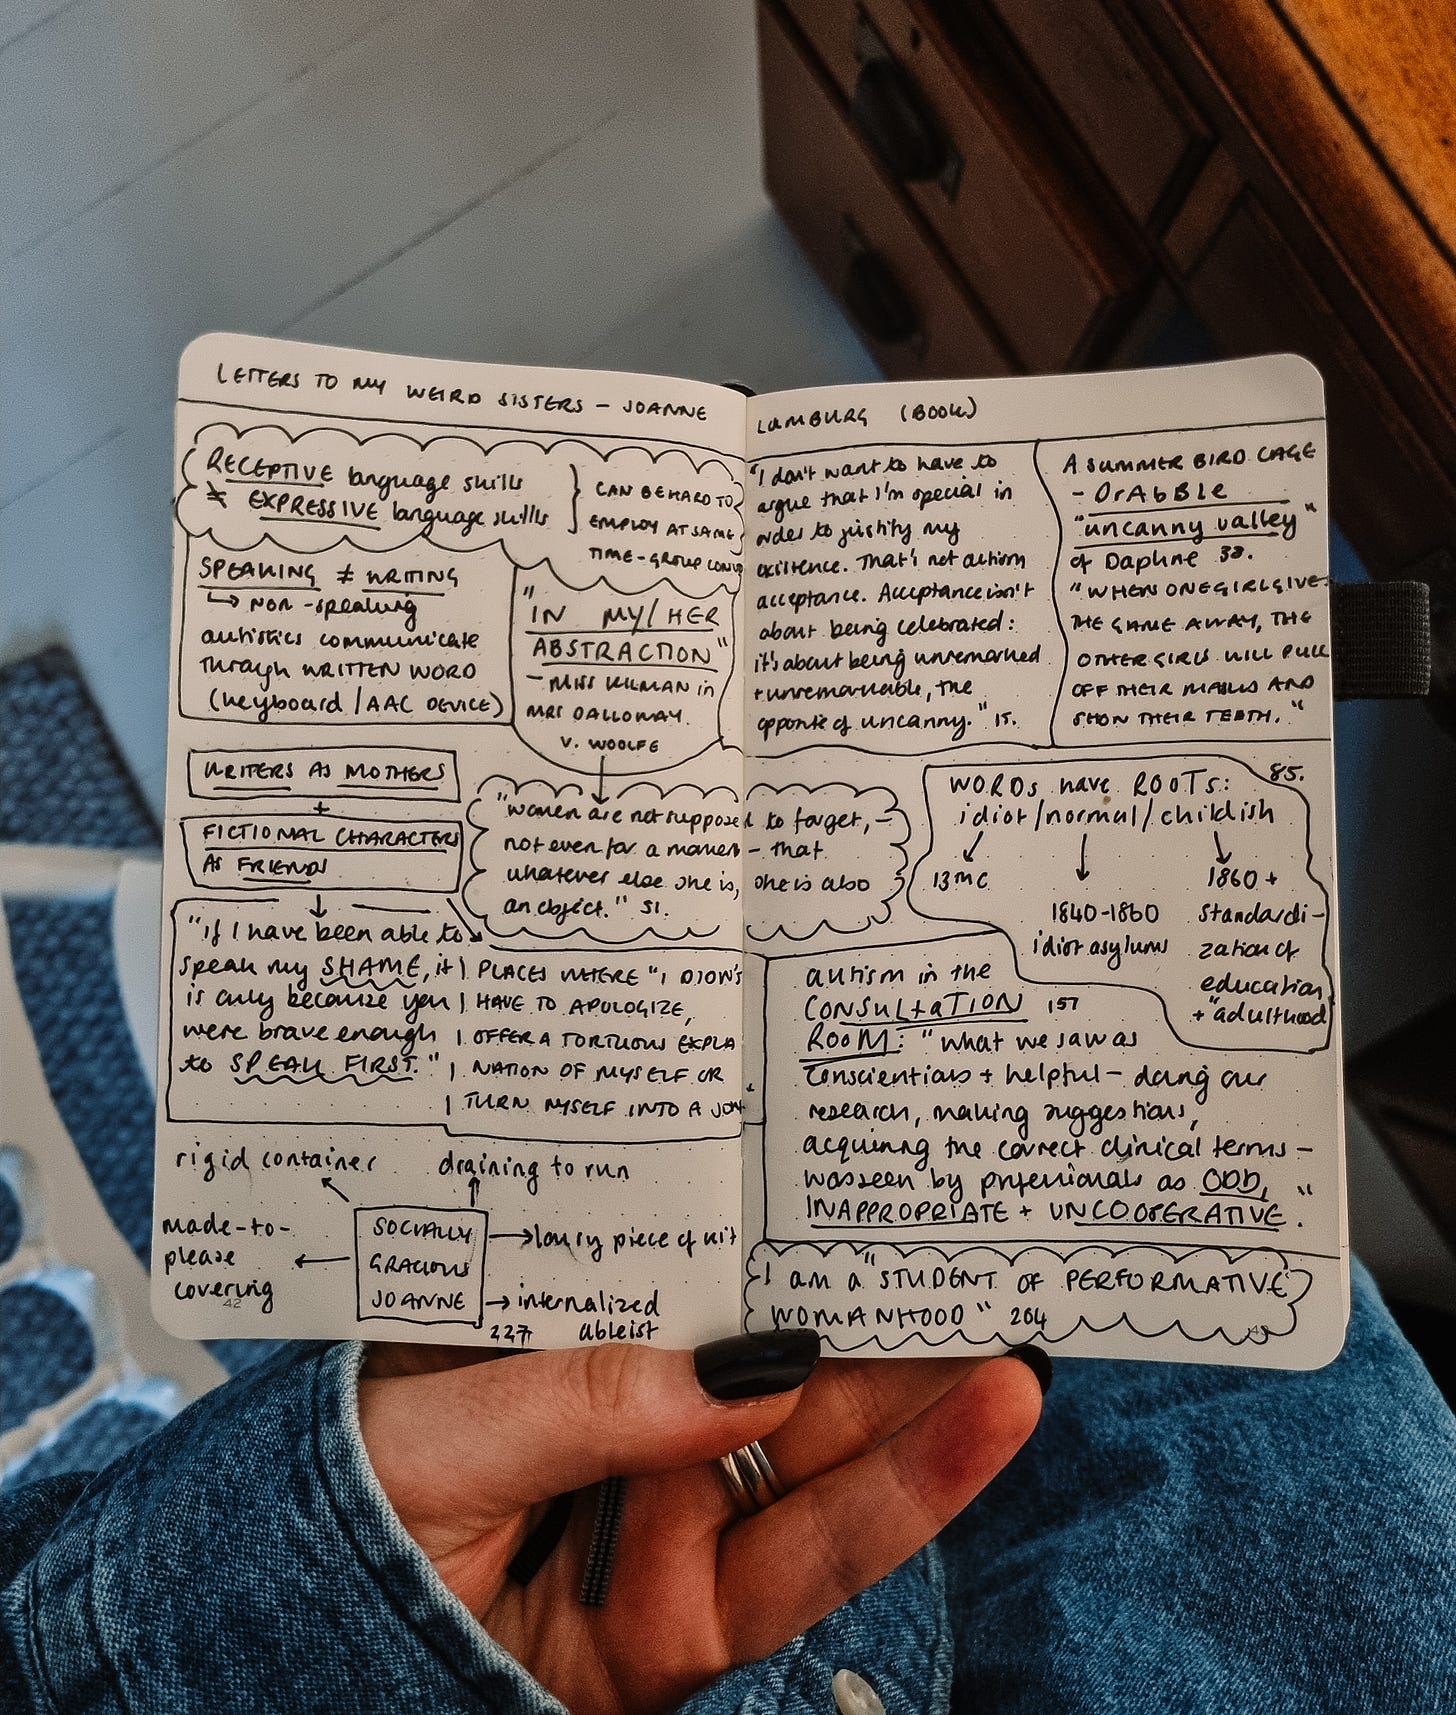 LETTERS TO MY WEIRD SISTERS – JOANNE
LAMBURG (BOOK)
RECEPTIVE language skills
≠ EXPRESSIVE language skills
CAN BE HARD TO
EMPLOY AT SAME
TIME – GROUP
SPEAKING ≠ WRITING
↳ NON-speaking
autistics communicate
through WRITTEN WORD
(keyboard / AAC DEVICE)
"IN MY/HER
ABSTRACTION"
– MISS KILMAN in
MRS DALLOWAY.
V. WOOLFE
WRITERS AS MOTHERS
+
FICTIONAL CHARACTERS
AS FRIENDS
"women are not supposed to forget, –
not even for a moment – that
whatever else she is, she is also
an object." 51.
"if I have been able to
speak my SHAME, it
is only because you
were brave enough
to SPEAK FIRST."
PLACES WHERE "I DIDN'T
HAVE TO APOLOGIZE,
OFFER A TORTUOUS EXPLA
NATION OF MYSELF OR
TURN MYSELF INTO A JOKE
rigid container
draining to run
made-to-
please
covering
SOCIALLY
GRACIOUS
JOANNE
→ lousy piece of kit
→ internalized
ableist
227
42
"I don't want to have to
argue that I'm special in
order to justify my
existence. That's not autism
acceptance. Acceptance isn't
about being celebrated:
it's about being unremarked
+ unremarkable, the
opposite of uncanny." 17.
A SUMMER BIRD CAGE
– DrAbBle
"uncanny valley"
of Daphne 38.
"WHEN ONE GIRL GIVES
THE GAME AWAY, THE
OTHER GIRLS WILL PULL
OFF THEIR MASKS AND
SHOW THEIR TEETH."
WORDS have ROOTS: 85.
idiot/normal/childish
13th C
1840-1860
idiot asylums
1860 +
standardi-
zation of
education
+ "adulthood"
autism in the
CONSULTATION 157
ROOM: "what we saw as
conscientious + helpful – doing our
research, making suggestions,
acquiring the correct clinical terms –
was seen by professionals as ODD,
INAPPROPRIATE + UNCOOPERATIVE."
I am a "STUDENT OF PERFORMATIVE
WOMANHOOD" 204